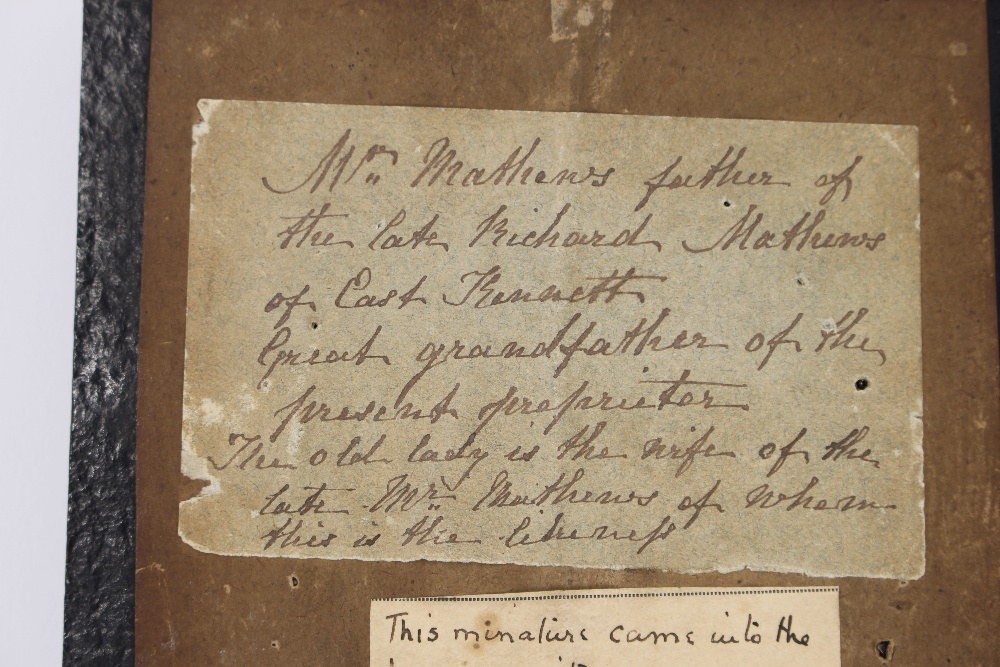 Mr. Mathews father of
the late Richard Mathews
of East Kennett
Great grandfather of the
present proprietor
The old lady is the wife of the
late Mr. Mathews of whom
this is the likeness
This minature came into the